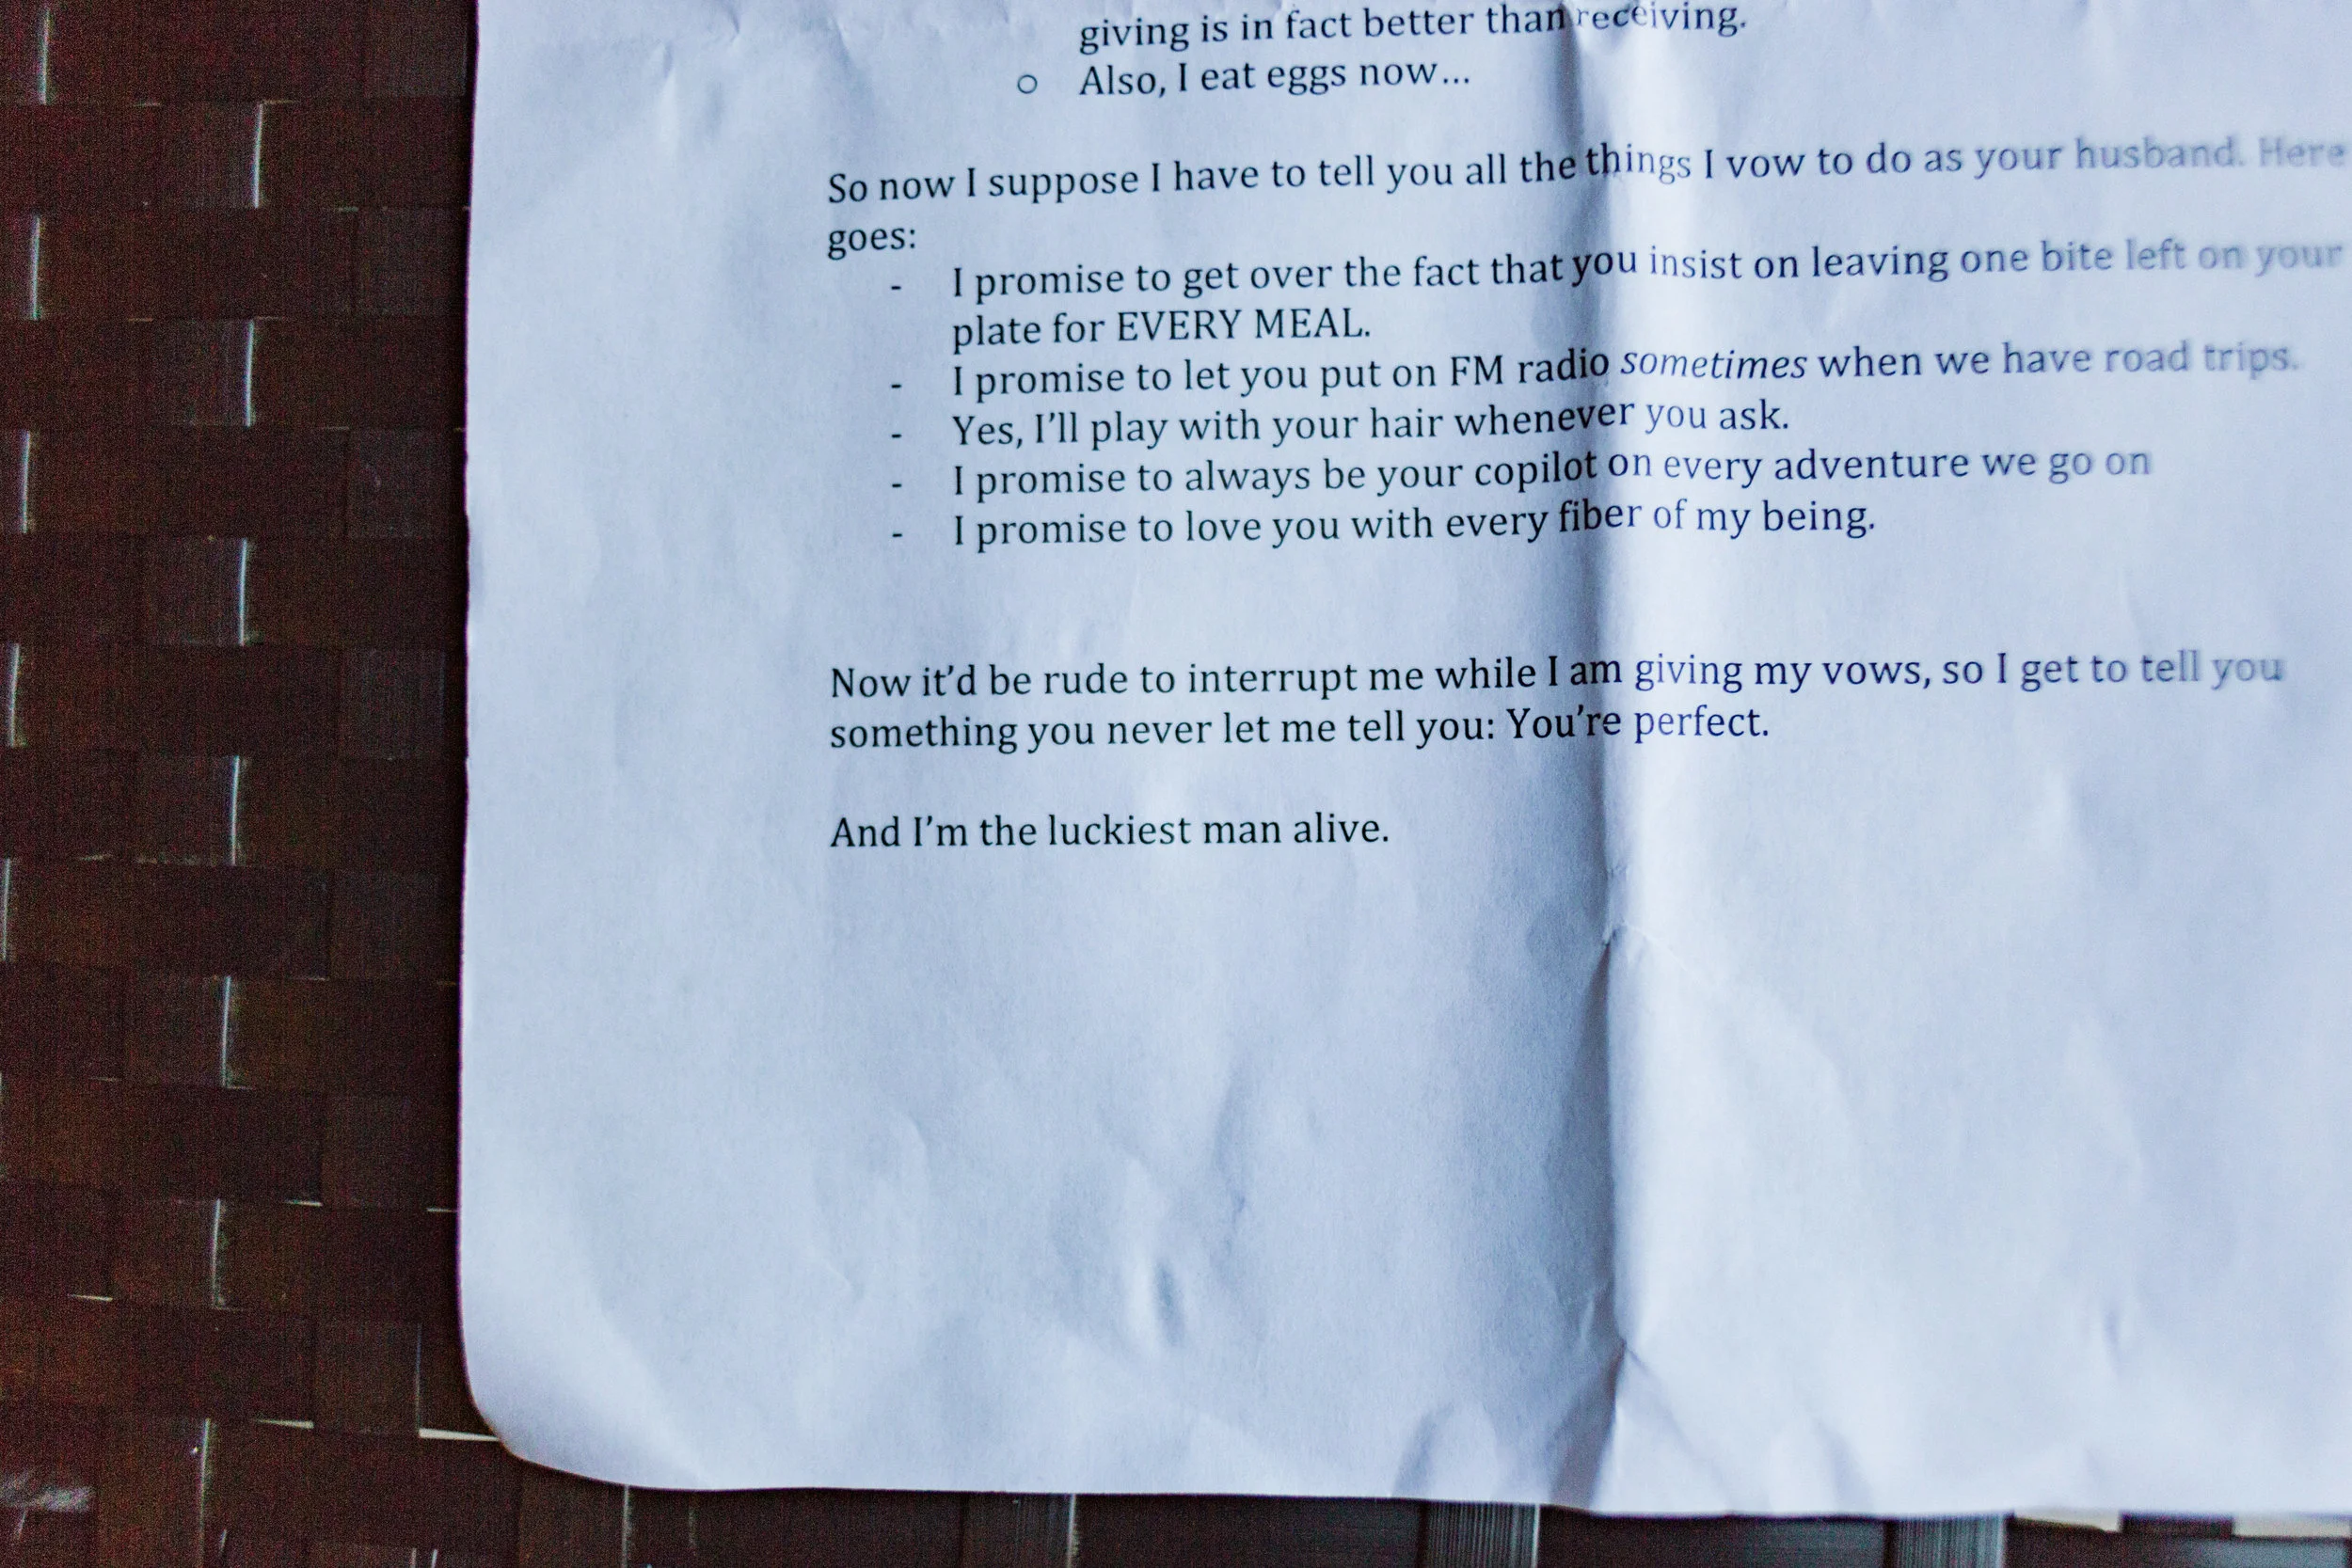 giving is in fact better than receiving.
o Also, I eat eggs now...
So now I suppose I have to tell you all the things I vow to do as your husband. Here
goes:
- I promise to get over the fact that you insist on leaving one bite left on your
plate for EVERY MEAL.
- I promise to let you put on FM radio sometimes when we have road trips.
- Yes, I'll play with your hair whenever you ask.
- I promise to always be your copilot on every adventure we go on
- I promise to love you with every fiber of my being.
Now it'd be rude to interrupt me while I am giving my vows, so I get to tell you
something you never let me tell you: You're perfect.
And I'm the luckiest man alive.